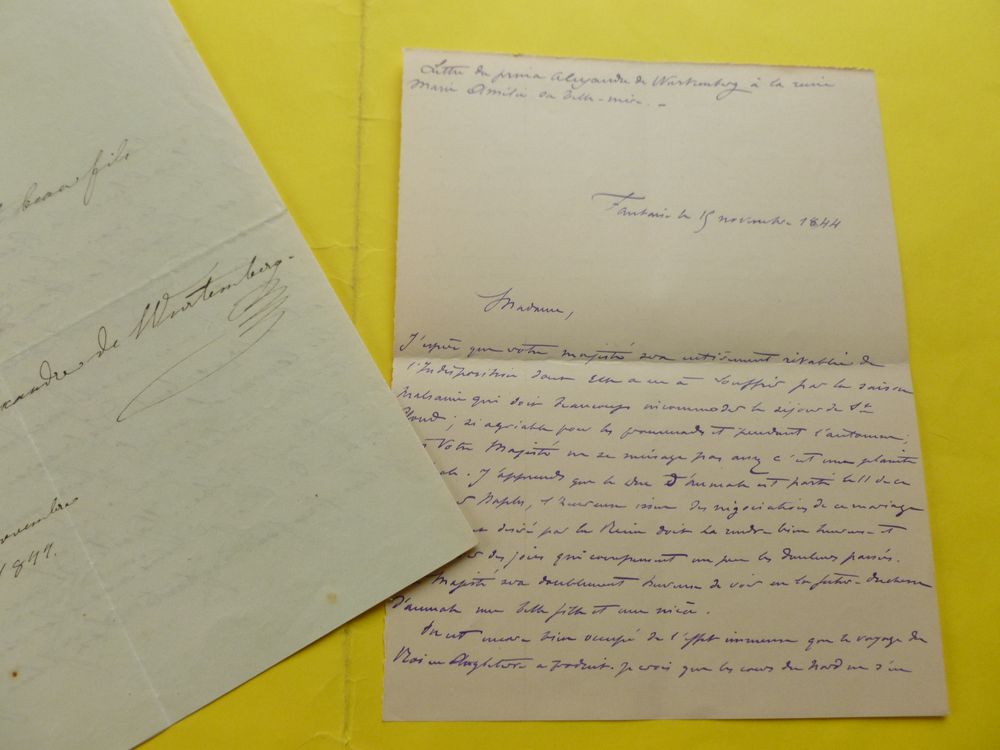 beau fils
xandre de Würtemberg.
novembre
1844.
Lettre du prince Alexandre de Wurtemberg à la reine
Marie Amélie sa belle-mère. -
Fantaisie le 15 novembre 1844
Madame,
J'espère que votre majesté sera entièrement rétablie de
l'Indisposition dont Elle a eu à souffrir par la saison
malsaine qui doit beaucoup incommoder le séjour de St
Cloud; si agréable pour les promenades et pendant l'automne;
Votre Majesté ne se ménage pas assez c'est une plainte
J'apprends que le Duc d'Aumale est parti le 11 de ce
Naples, l'heureuse issue des négociations de ce mariage
désiré par la Reine doit La rendre bien heureuse et
des joies qui compensent un peu les douleurs passées.
Majesté sera doublement heureuse de voir en la future Duchesse
d'aumale une belle fille et une nièce.
On est encore bien occupé de l'effet immense que le voyage du
Roi en Angleterre a produit. je crois que les cours du Nord ne s'en